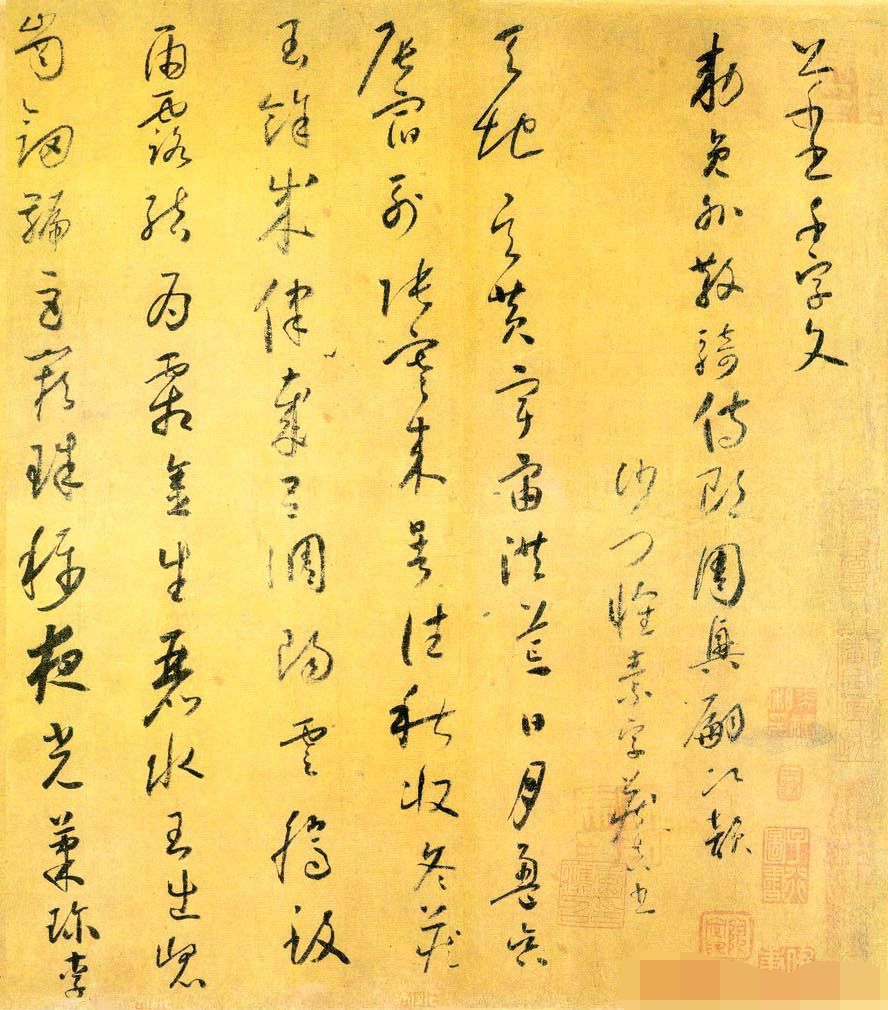 草書千字文
勅員外散騎侍郎周興嗣次韻
沙門懷素字藏真書
天地玄黃宇宙洪荒日月盈昃
辰宿列張寒來暑往秋收冬藏
閏餘成律歲呂調陽雲騰致
雨露結為霜金生麗水玉出崑
崗劍號巨闕珠稱夜光菓珍李